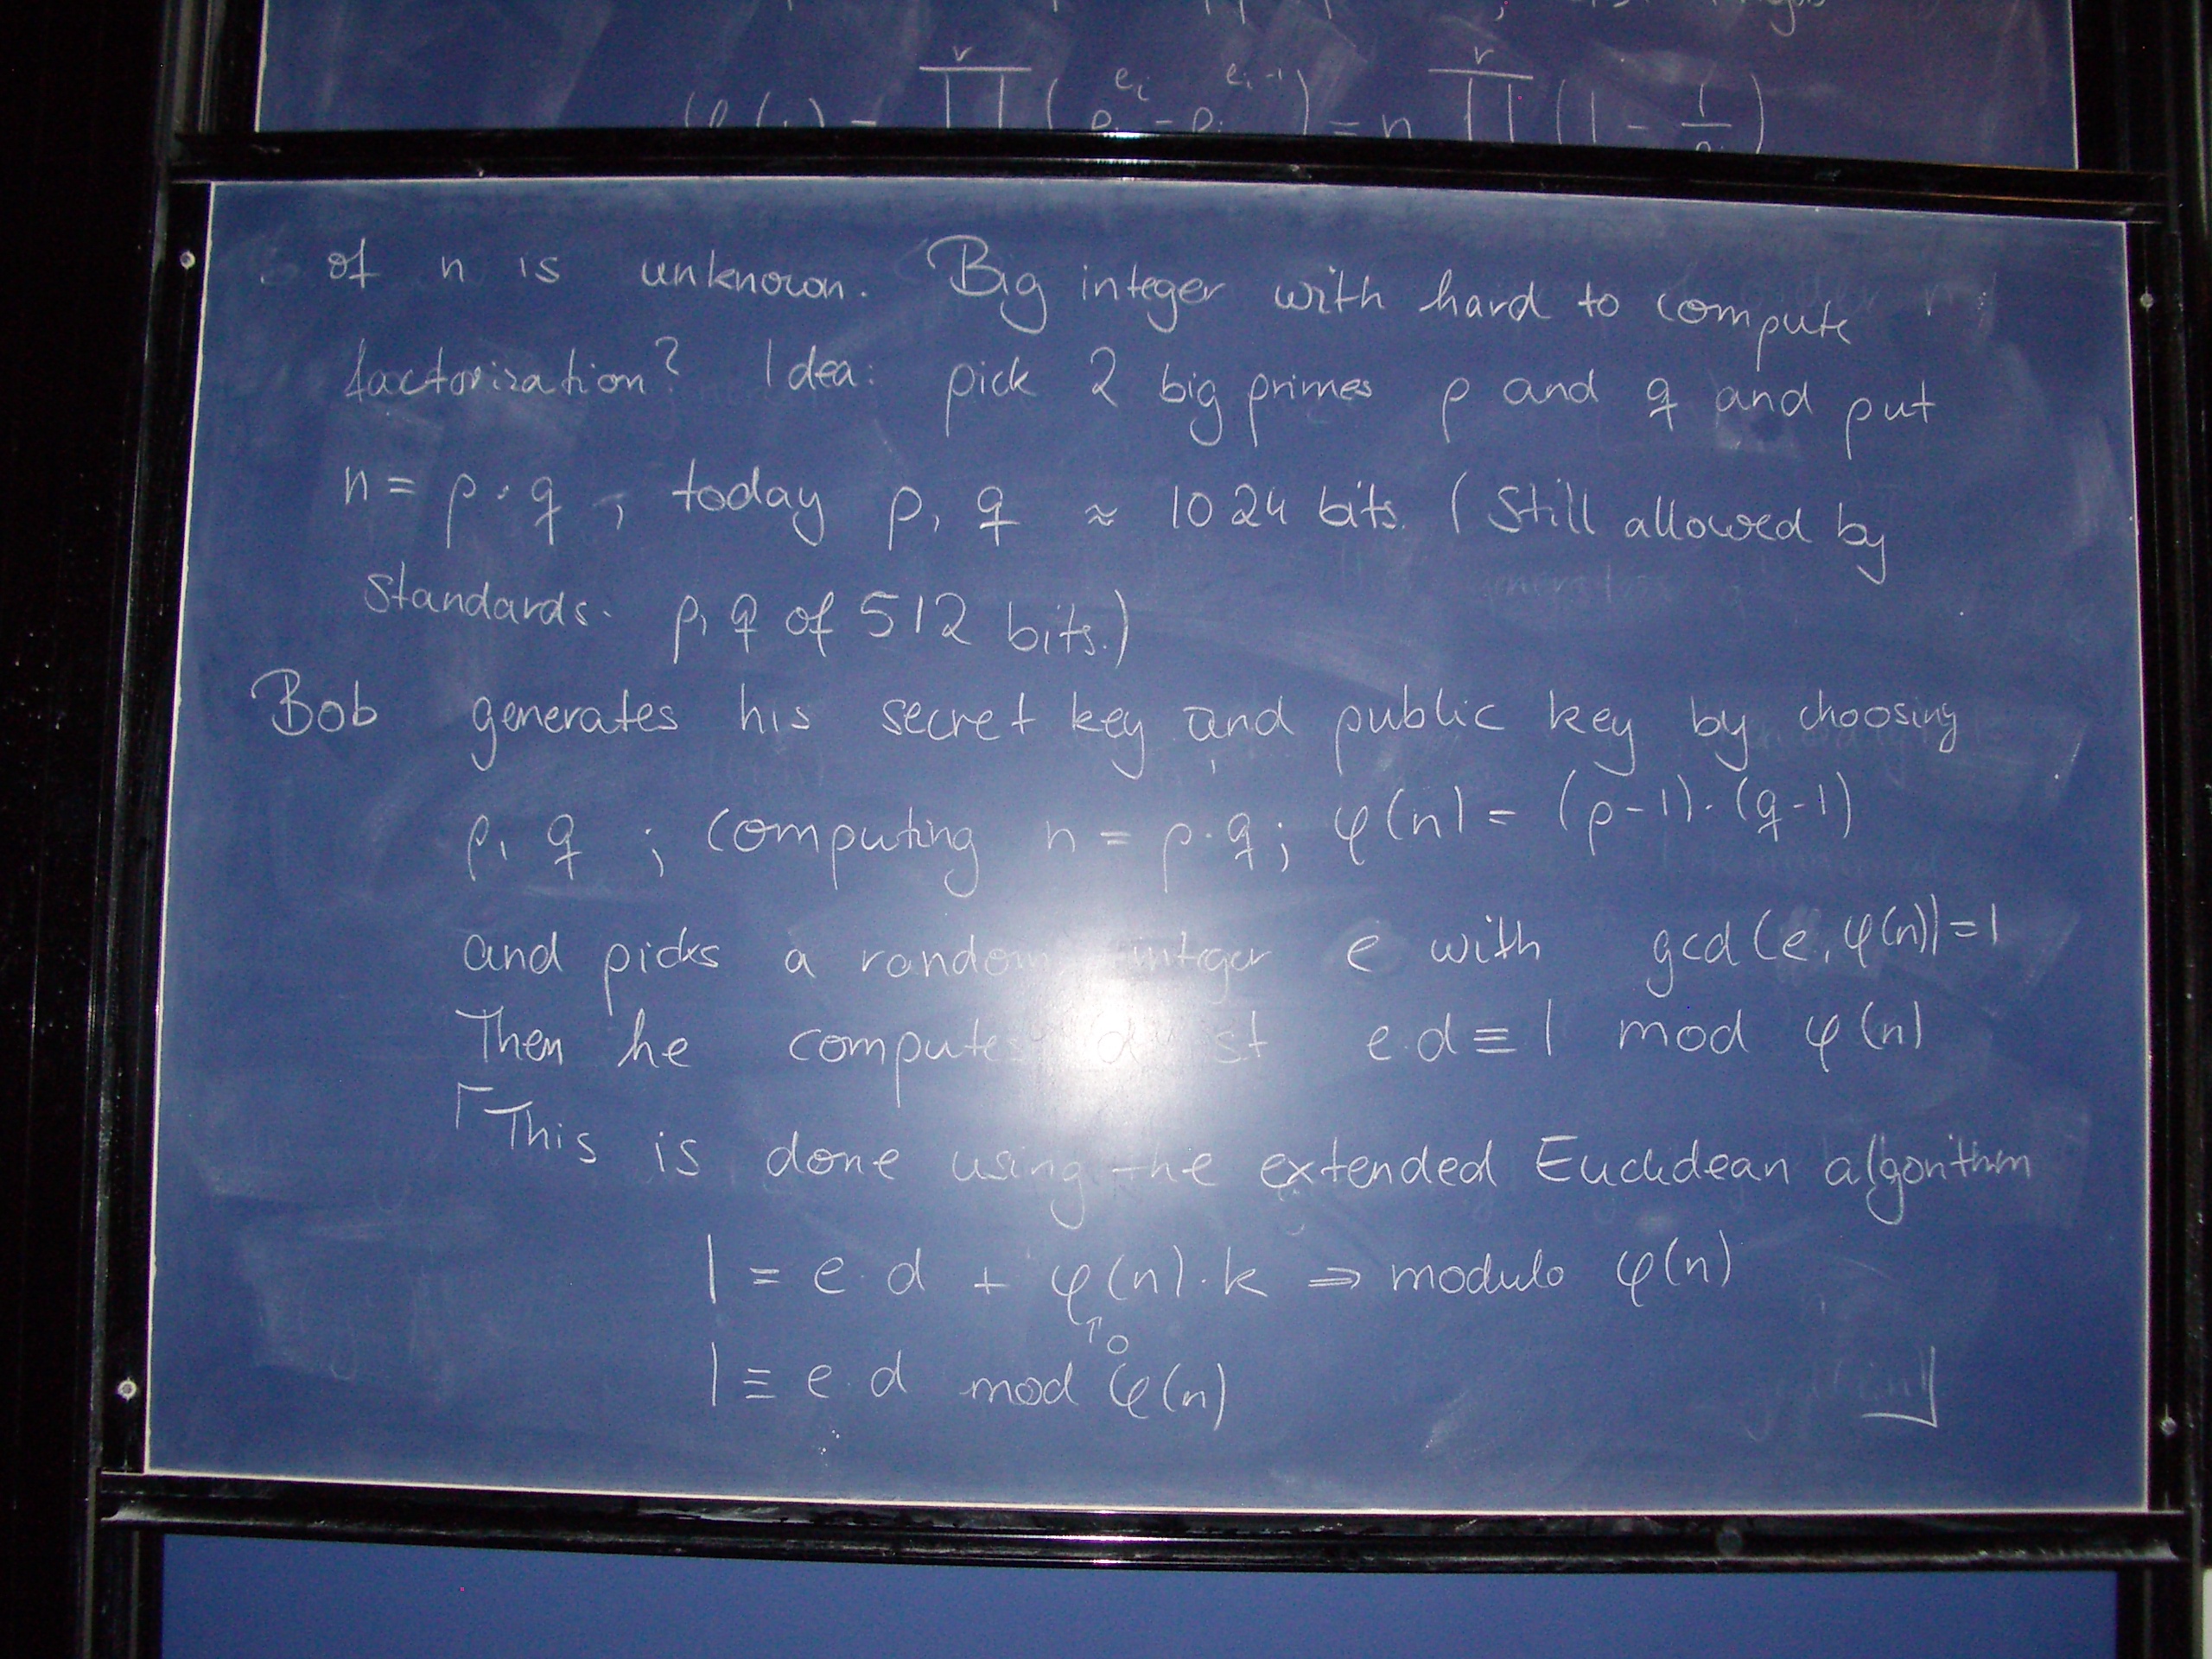 φ(n) = ∏ʳ (pᵢ^{eᵢ} - pᵢ^{eᵢ-1}) = n ∏ʳ (1 - 1/pᵢ)
of n is unknown. Big integer with hard to compute
factorization? Idea: pick 2 big primes p and q and put
n = p·q, today p, q ≈ 1024 bits. (Still allowed by
standards. p, q of 512 bits.)
Bob generates his secret key and public key by choosing
p, q ; computing n = p·q; φ(n) = (p-1)·(q-1)
and picks a random integer e with gcd(e, φ(n))=1
Then he computes d st e·d ≡ 1 mod φ(n)
⌈This is done using the extended Euclidean algorithm
1 = e·d + φ(n)·k ⇒ modulo φ(n)
↑0
1 ≡ e·d mod φ(n) ⌋